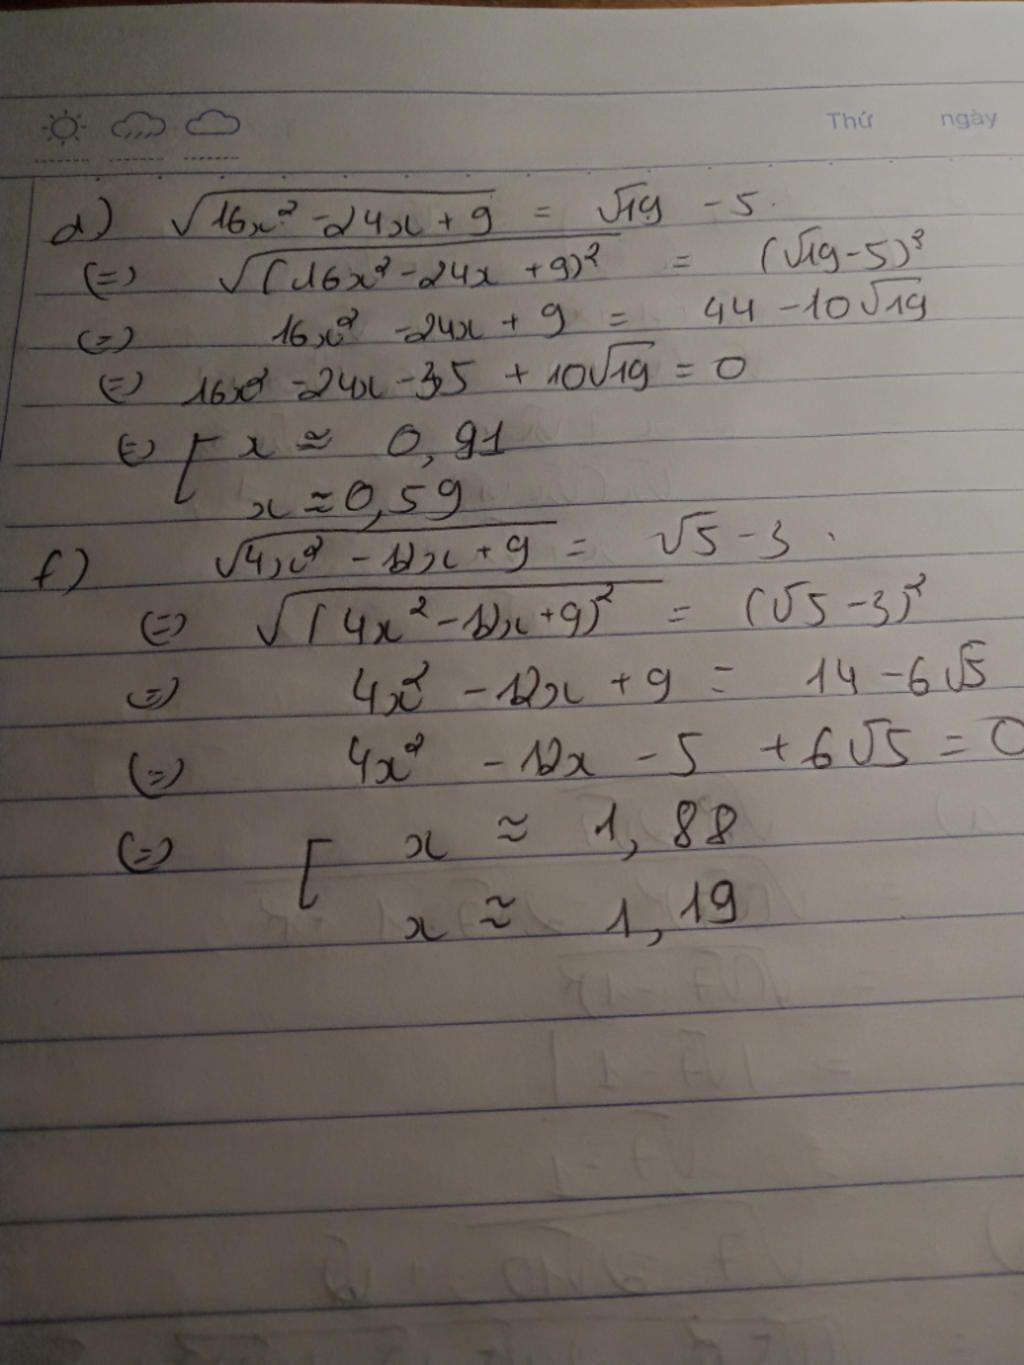 Thứ ngày
d) √(16x² - 24x + 9) = √19 - 5.
(=) √((16x² - 24x + 9)²) = (√19 - 5)²
(=) 16x² - 24x + 9 = 44 - 10√19
(=) 16x² - 24x - 35 + 10√19 = 0
(=) [ x ≈ 0,91
x ≈ 0,59
f) √(4x² - 12x + 9) = √5 - 3.
(=) √((4x² - 12x + 9)²) = (√5 - 3)²
(=) 4x² - 12x + 9 = 14 - 6√5
(=) 4x² - 12x - 5 + 6√5 = 0
(=) [ x ≈ 1,88
x ≈ 1,19